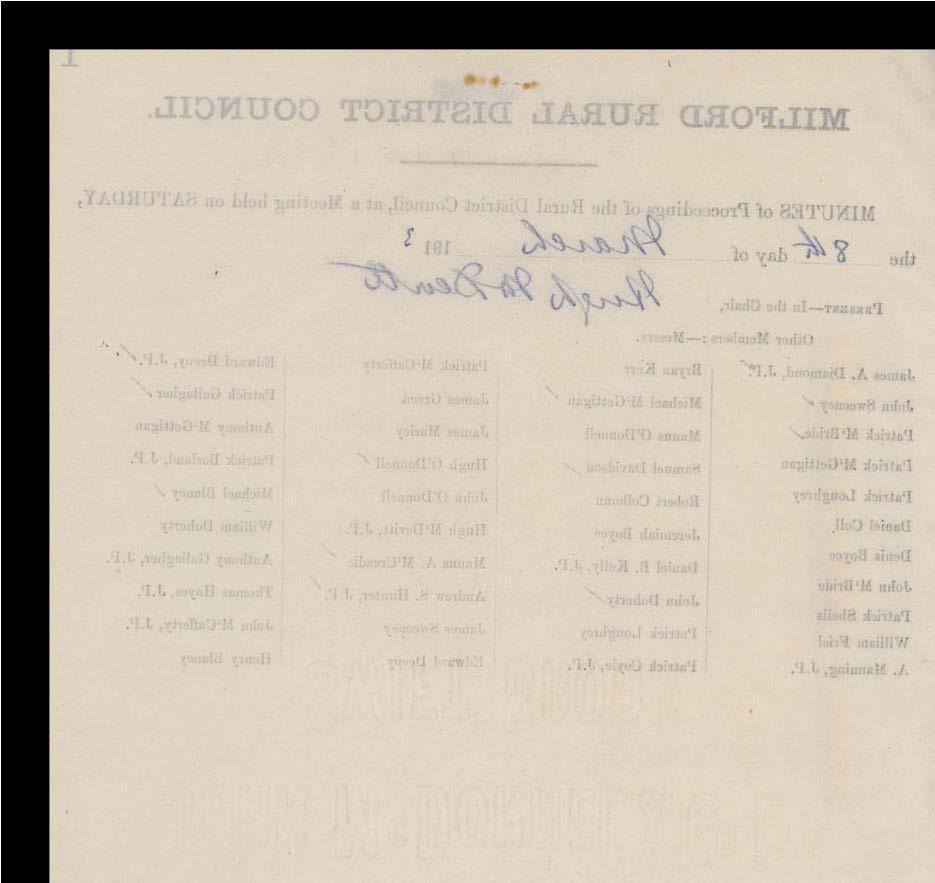 1
MILFORD RURAL DISTRICT COUNCIL.
MINUTES of Proceedings of the Rural District Council, at a Meeting held on SATURDAY,
the 8th day of March 1913
PRESENT—In the Chair, Hugh McDevitt
Other Members:—Messrs.
James A. Diamond, J.P. Bryan Kerr Patrick McCafferty Edward Deeny, J.P.
John Sweeney Michael McGettigan James Green Patrick Gallagher
Patrick McBride Manus O'Donnell James Marley Anthony McGettigan
Patrick McGettigan Samuel Davidson Hugh O'Donnell Patrick Borland, J.P.
Patrick Loughrey Robert Colhoun John O'Donnell Michael Blaney
Daniel Coll Jeremiah Boyce Hugh McDevitt, J.P. William Doherty
Denis Boyce Daniel B. Kelly, J.P. Manus A. McCreadie Anthony Gallagher, J.P.
John McBride John Doherty Andrew S. Hunter, J.P. Thomas Hayes, J.P.
Patrick Sheils Patrick Loughrey James Sweeney John McCafferty, J.P.
William Friel Patrick Coyle, J.P. Edward Deeny Henry Blaney
A. Manning, J.P.